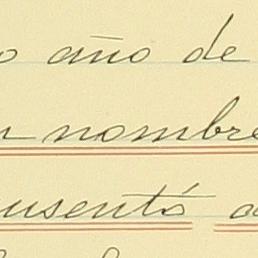 o año de
n nombre
usentó a